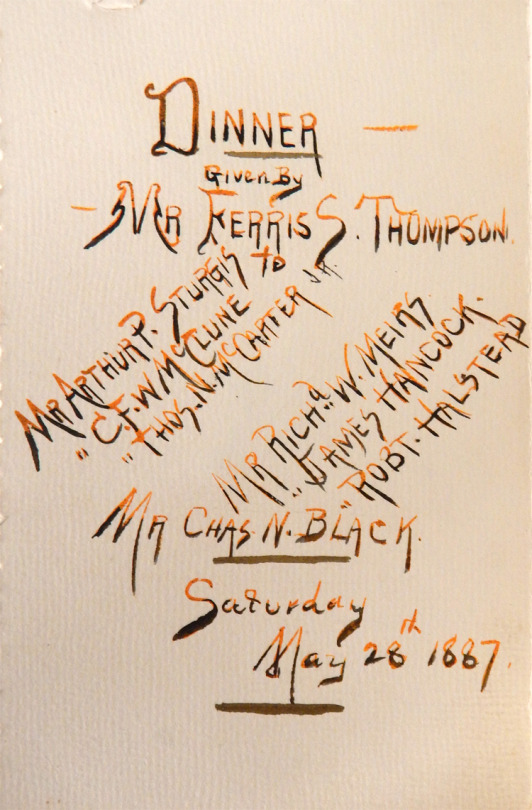 DINNER —
Given By
— MR FERRIS S. THOMPSON.
to
MR ARTHUR P. STURGIS
" C.F.W. McCLUNE
" THOS. N. McCARTER JR.
MR RICHD. W. MEIRS
" JAMES HANCOCK.
" ROBT. HALSTEAD
MR CHAS. N. BLACK.
Saturday
May 28th 1887.